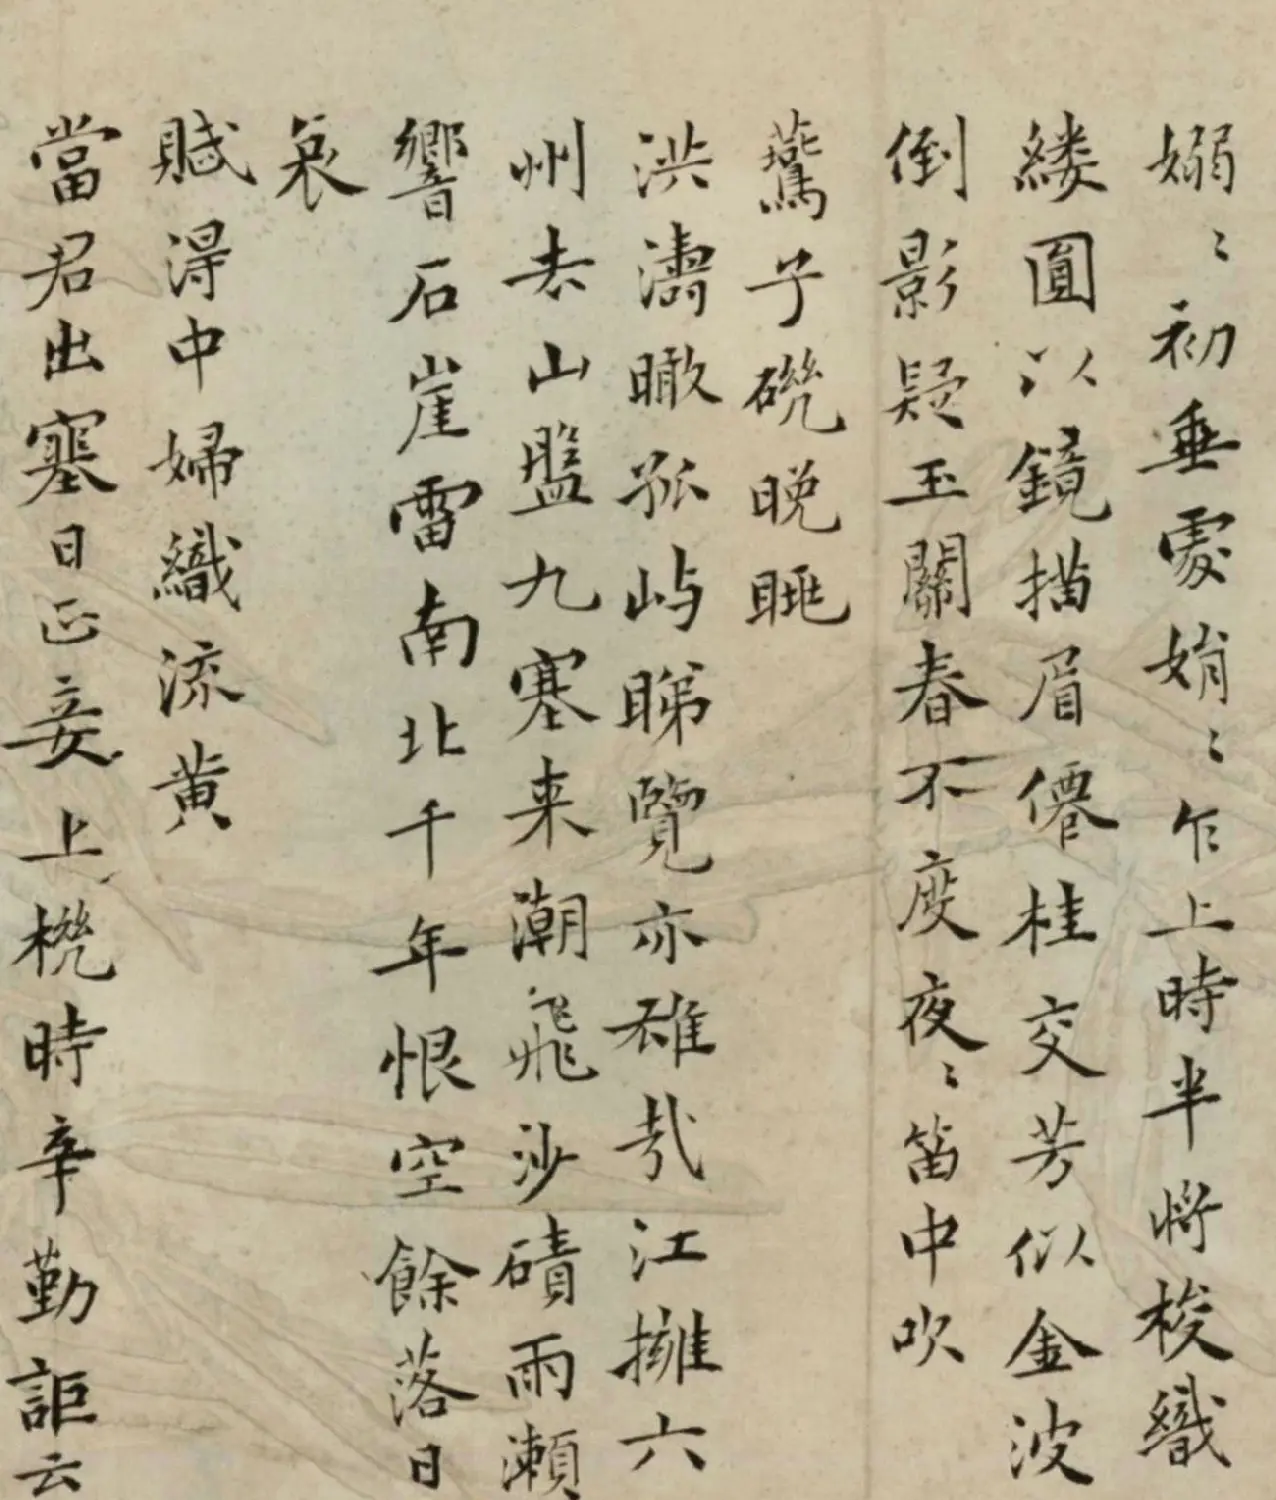 嫋〻初垂處娟〻乍上時半將梭織
縷圓以鏡描眉僊桂交芳似金波
倒影疑玉關春不度夜〻笛中吹
燕子磯晚眺
洪濤瞰孤屿睇覽亦雄哉江擁六
州去山盤九塞来潮飛沙磧雨瀬
響石崖雷南北千年恨空餘落日
哀
賦得中婦織流黄
當君出塞日正妾上機時辛勤詎云